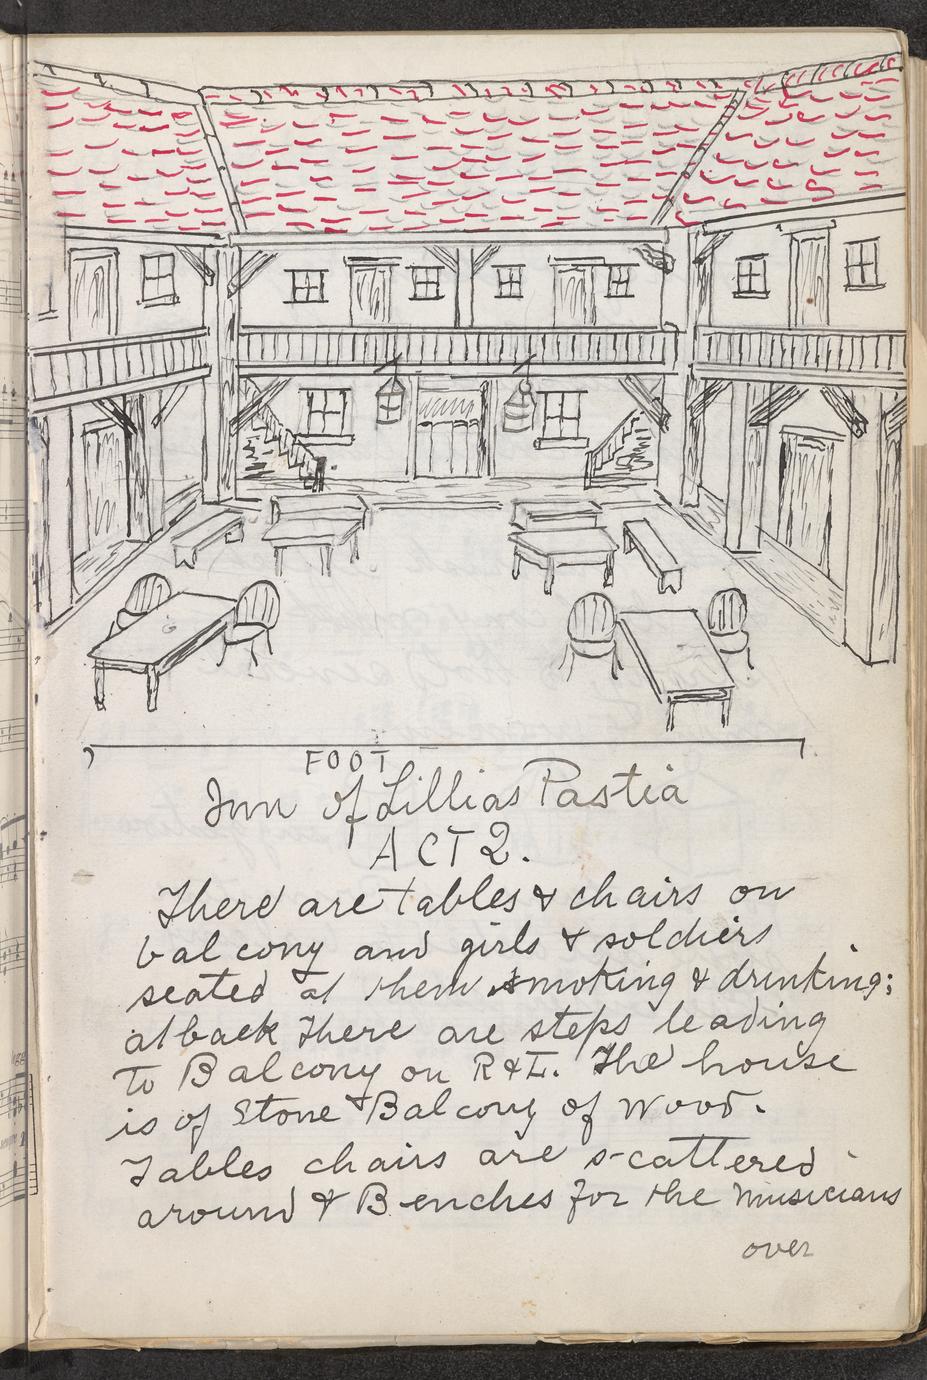 FOOT
Inn of Lillias Pastia
ACT 2.
There are tables & chairs on
balcony and girls & soldiers
seated at them smoking & drinking;
at back there are steps leading
to Balcony on R & L. The house
is of Stone & Balcony of Wood.
Tables chairs are scattered
around & Benches for the musicians
over